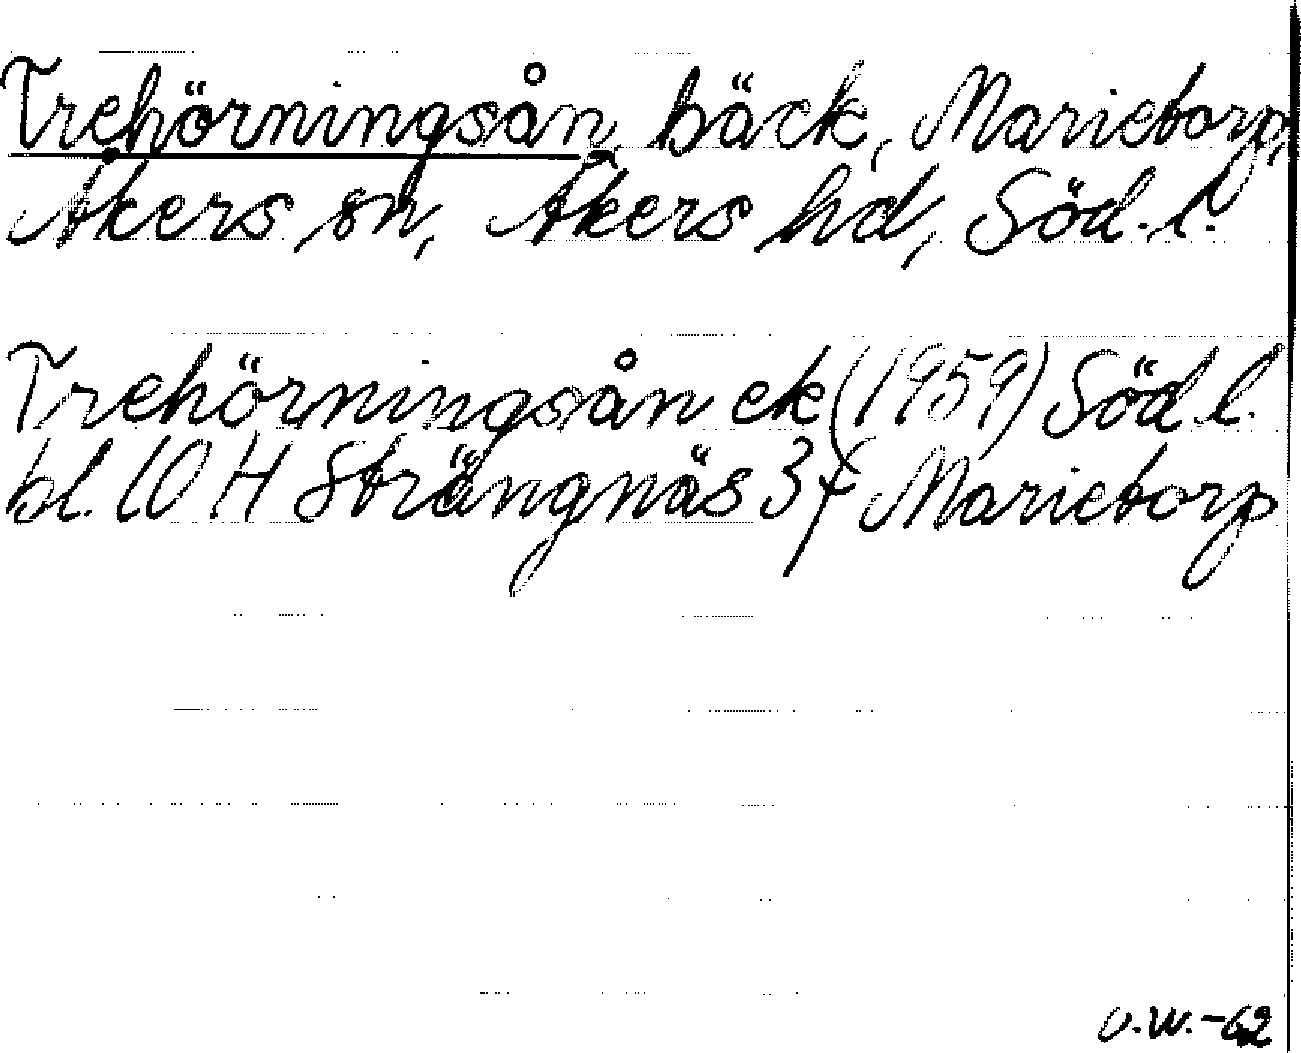 Trehörningsån, bäck, Marietorp,
Åkers sn, Åkers hd, Söd. l.
Trehörningsån ek (1959) Söd l.
bl. 10 H Strängnäs 3 f Marietorp
O.W.-62